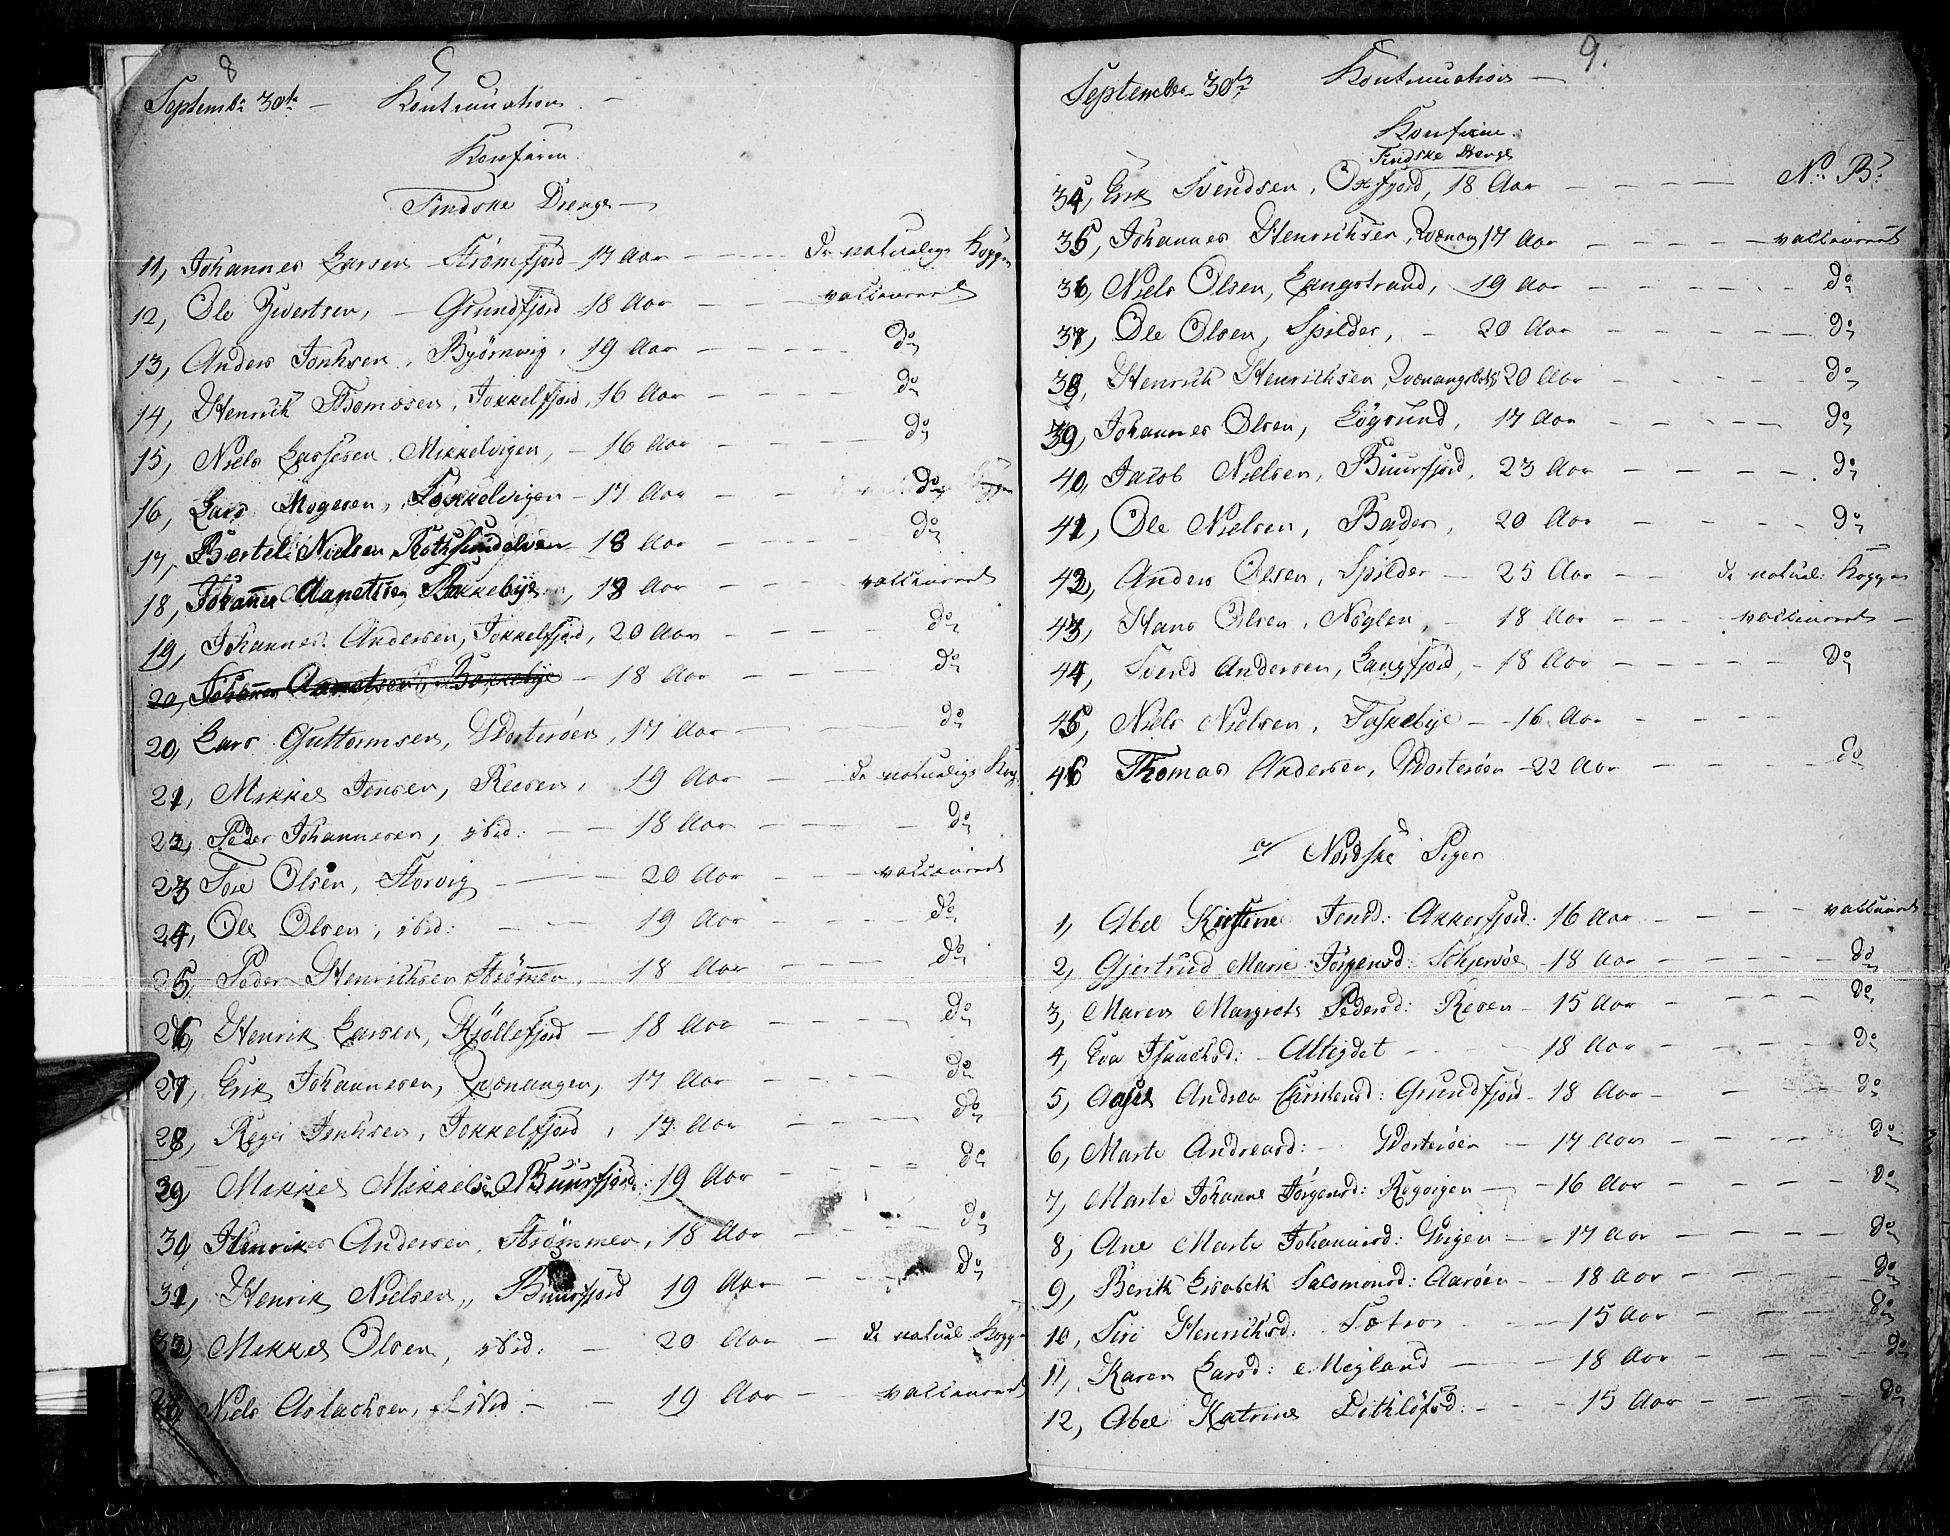 8
Septembr 30te — Kontinuation —
Konfirm:
Findske Drenge —
11, Johannes Larsen — Strømfjord — 17 Aar — — — De naturlige Kopper
12, Ole Zivertsen, — Grundfjord 18 Aar — — vaccineret
13, Anders Jonhsen, Byørnvig, 19 Aar — — — — do
14, Henrich Thomosen, Jokkelfjord, 16 Aar — — — do
15, Niels Lassesen, Mikkelvigen, — 16 Aar — — — do
16, Lars Mogesen, Tokkelvigen — 17 Aar — — do
17, Bertel Nielsen Rothsundelven — 18 Aar — — — do
18, Johannes Aanetsen, Bakkebye, 18 Aar — — — vaccineret
19, Johannes Andersen, Jokkelfjord, 20 Aar — — — do
20, Johannes Aanetsen, Bakkebye — 18 Aar — — — do
20, Lars Guttormsen, Worterøen, 17 Aar — — — do
21, Mikkel Jensen, Reisen, 19 Aar — — De naturlige Kop
22, Peder Johannesen, ibid: — — 18 Aar — — — do
23 Foie Olsen, Storvig — — 20 Aar — — — vaccineret
24, Ole Olsen, ibid: — — 19 Aar — — — do
25, Peder Henrichsen Strømmen, 18 Aar — — — do
26, Henrik Larsen, Kjøllefjord — 18 Aar — — — — do
27, Erik Johannesen, Qvænangen, 17 Aar — — — — do
28, Jonhsen, Jokkelfjord, 17 Aar — — — — do
29, Mikkel Mikkelsen Buursfjord: 19 Aar — — — — do
30, Henrik Andersen, Strømmen, 18 Aar — — — — do
31, Henrik Nielsen, Buursfjord 19 Aar — — — do
32, Mikkel Olsen, ibid: — 20 Aar — De natural: Kopp
Niels Aslachsen, ibid: — — 19 Aar — — vaccineret
9.
September 30te Kontinuation —
Konfirm:
Findske Drenge
34, Erik Svendsen, Oxfjord, 18 Aar — — — — N: B:
35, Johannes Henrichsen, Qvænang 17 Aar — — — — — vaccineret
36, Niels Olsen, Langstrand, 19 Aar — — — — — do
37, Ole Olsen, Spilder, — 20 Aar — — — — — do
38, Henrich Henrichsen, Qvænangsbotn 20 Aar — — — — do
39, Johannes Olsen, Løgsund, 17 Aar — — — — do
40, Jacob Nielsen, Buursfjord, 23 Aar — — — — do
41, Ole Nielsen, Bader, 20 Aar — — — — do
42, Anders Olsen, Spilder — 25 Aar — — De natural: Kopper
43, Hans Olsen, Nøglen, — 18 Aar — — — vaccineret —
44, Svend Andersen, Langfjord, — 18 Aar — — — do
45, Niels Nielsen, Taskebye — — 16 Aar — — — —
46 Thomas Andersen, Worterøen — 22 Aar — — — — do
c/ Nordske Piger
1, Abel Kirstine Jensd: Akkerfjord: 16 Aar — — — — vaccineret
2, Gjertrud Marie Jørgensd: Schjervøe — 18 Aar — — — — do
3, Maren Margrete Pedersd: Reisen — 15 Aar — — — — do
4, Eva Isaachsd: — Alteydet — — 18 Aar — — — — do
5, Andrea Christensd: Grundfjord — 18 Aar — — — do
6, Marte Andreasd: — Worterøen — 17 Aar — — — — do
7, Marte Johanne Jørgensd: Røgvigen — — 16 Aar — — — — do
8, Ane Marte Johannesd: Vigen — — 17 Aar — — — — do
9, Berith Lisabeth Salomonsd: Aarøen — — 18 Aar — — — — do
10, Siri Henrichsd: — — 15 Aar — — — — do
11, Karen Larsd: Meyland — — 18 Aar — — — — do
12, Abel Katrine Dithlefsd: — — — 15 Aar — — — — do